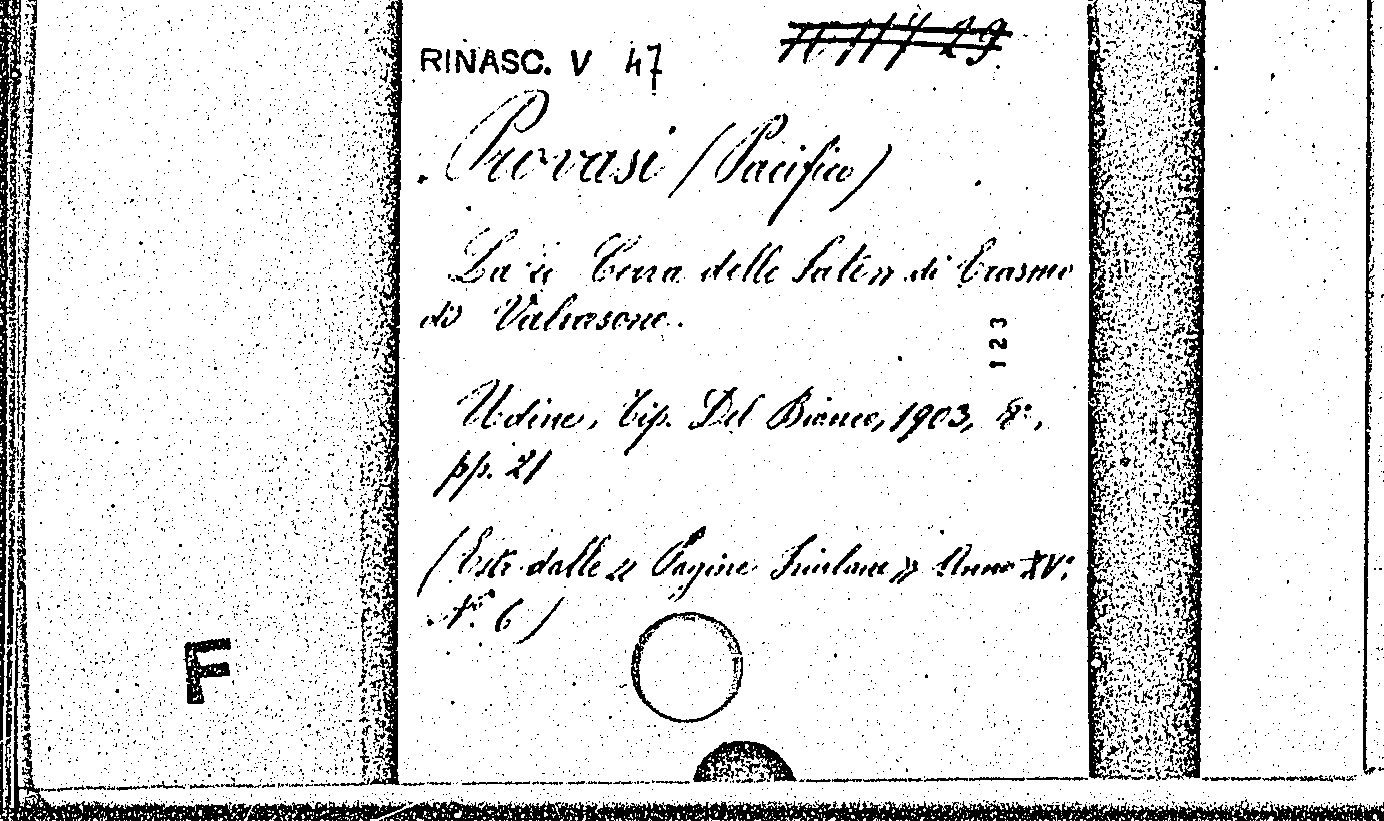 RINASC. V 47
Provasi (Pacifico)
La delle di Erasmo
di Valvasone.
123
Udine, Tip. Del Bianco, 1903, 8°,
pp. 21
(Estr. dalle « Pagine Friulane » Anno XV°
N° 6)
F